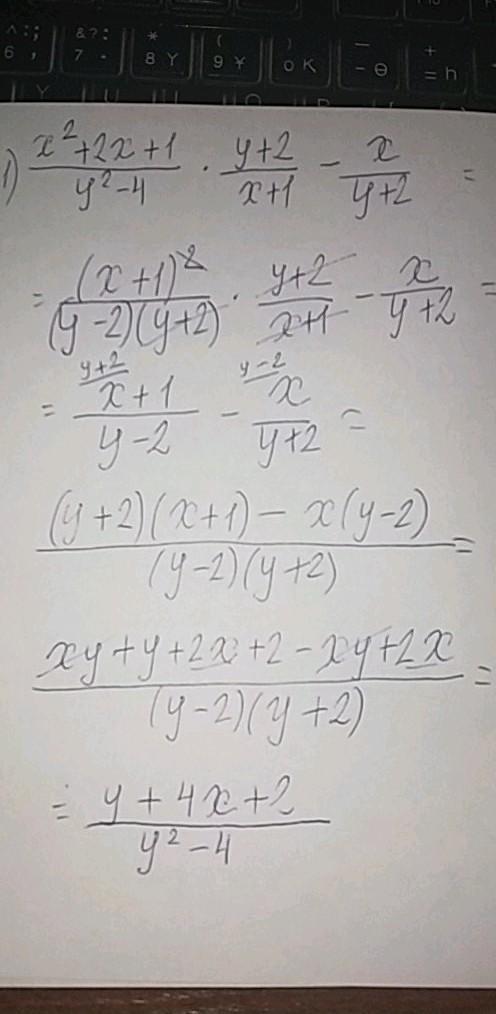 ^ : ; &? : * ( ) — +
6 , 7 . 8 Y 9 ¥ 0 K - Ө = h
1) (x²+2x+1)/(y²-4) · (y+2)/(x+1) - x/(y+2) =
= (x+1)²/((y-2)(y+2)) · (y+2)/(x+1) - x/(y+2) =
= y+2/ (x+1)/(y-2) - y-2/ x/(y+2) =
((y+2)(x+1) - x(y-2))/((y-2)(y+2)) =
(xy+y+2x+2-xy+2x)/((y-2)(y+2)) =
= (y+4x+2)/(y²-4)